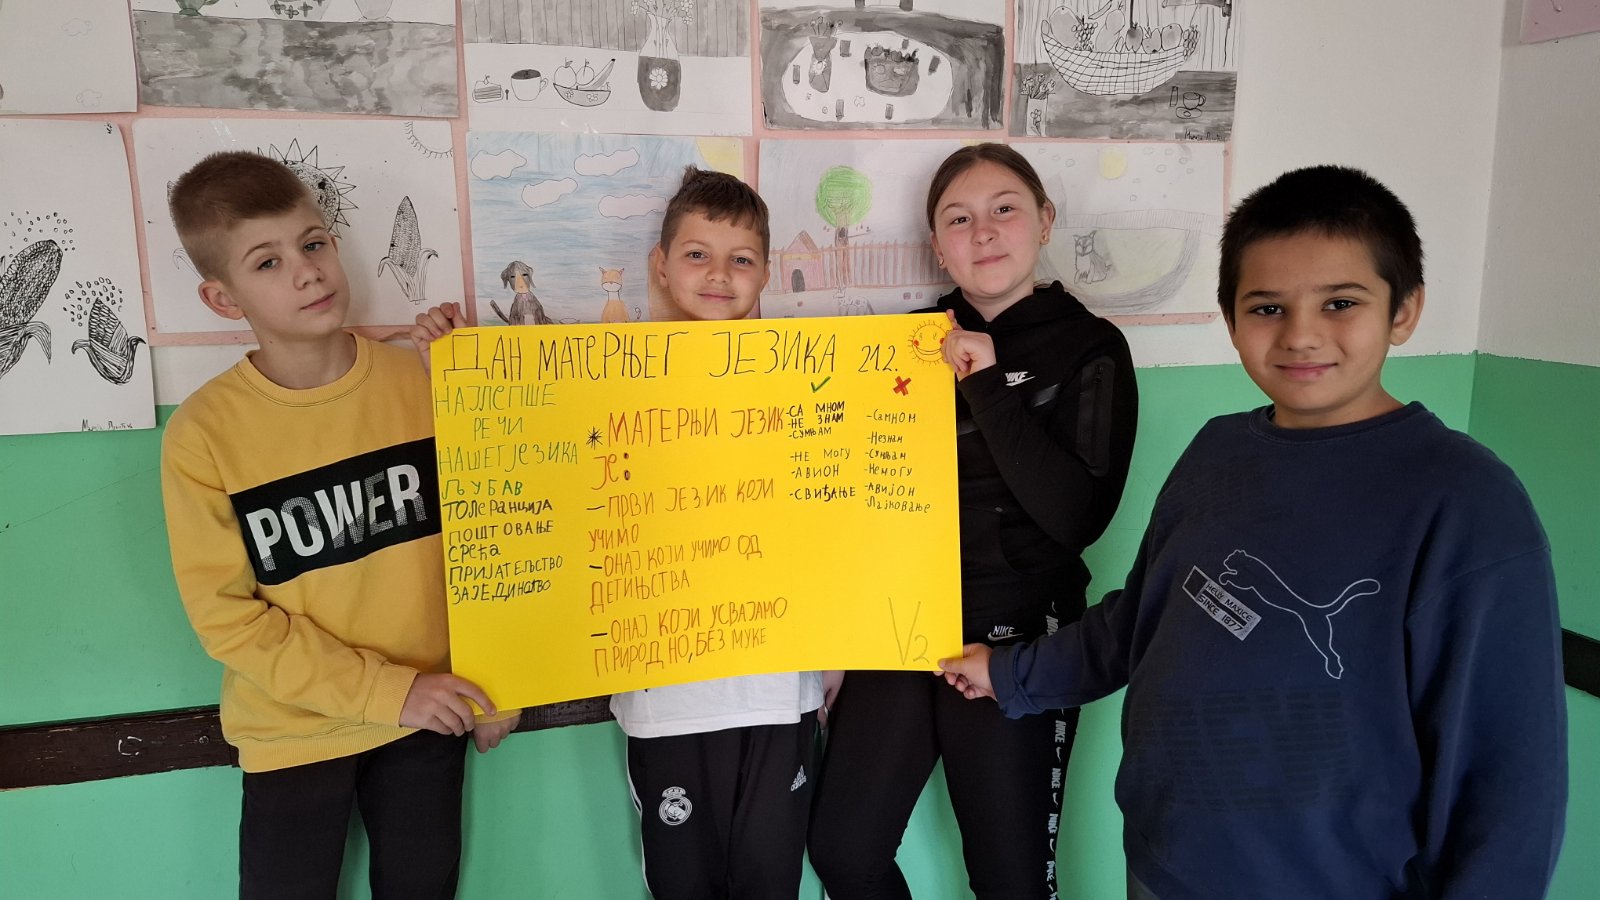 ДАН МАТЕРЊЕГ ЈЕЗИКА 21.2.
НАЈЛЕПШЕ
РЕЧИ
НАШЕГ ЈЕЗИКА
ЉУБАВ
ТОЛЕРАНЦИЈА
ПОШТОВАЊЕ
СРЕЋА
ПРИЈАТЕЉСТВО
ЗАЈЕДИНСТВО
*МАТЕРЊИ ЈЕЗИК
ЈЕ:
–ПРВИ ЈЕЗИК КОЈИ
УЧИМО
–ОНАЈ КОЈИ УЧИМО ОД
ДЕТИЊСТВА
–ОНАЈ КОЈИ УСВАЈАМО
ПРИРОДНО, БЕЗ МУКЕ
✓
-СА МНОМ
-НЕ ЗНАМ
-СУМЊАМ
-НЕ МОГУ
-АВИОН
-СВИЂАЊЕ
✗
-Самном
-Незнам
-Немогу
-АВИЈОН
-Лајковање
V2
POWER
NIKE
NIKE
adidas
HELLY MAXICE
SINCE 1877
NIKE
NIKE
NIKE